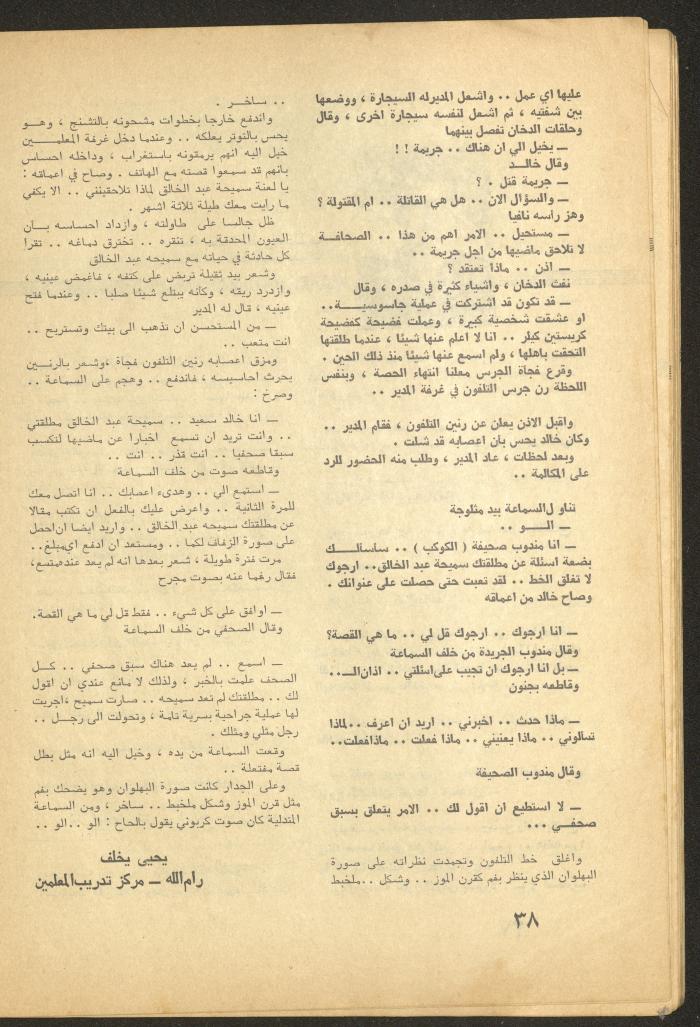 عليها اي عمل .. واشعل المديرله السيجارة ، ووضعها
بين شفتيه ، ثم اشعل لنفسه سيجارة اخرى ، وقال
وحلقات الدخان تفصل بينهما
ـ يخيل الي ان هناك .. جريمة ! !
وقال خالــد
ـ جريمة قتل . ؟
ـ والسؤال الان .. هل هي القاتلة .. ام المقتولة ؟
وهز راسه نافيا
ـ مستحيل .. الامر اهم من هذا .. الصحافــة
لا تلاحق ماضيها من اجل جريمة ..
ـ اذن .. ماذا تعتقد ؟
نفث الدخان ، واشياء كثيرة في صدره ، وقال
ـ قد تكون قد اشتركت في عملية جاسوسيــة..
او عشقت شخصية كبيرة ، وعملت فضيحة كفضيحة
كريستين كيلر .. انا لا اعلم عنها شيئا ، عندما طلقتها
التحقت باهلها ، ولم اسمع عنها شيئا منذ ذلك الحين .
وقرع فجاة الجرس معلنا انتهاء الحصة ، وبنفس
اللحظة رن جرس التلفون في غرفة المدير ..
واقبل الاذن يعلن عن رنين التلفون ، فقام المدير ..
وكان خالد يحس بان اعصابه قد شلت .
وبعد لحظات ، عاد المدير ، وطلب منه الحضور للرد
على المكالمة ..
تناول السماعة بيد مثلوجة
ـ الــو ..
ـ انا مندوب صحيفة ( الكوكب ) .. ساسألــك
بضعة اسئلة عن مطلقتك سميحة عبد الخالق.. ارجوك
لا تغلق الخط .. لقد تعبت حتى حصلت على عنوانك .
وصاح خالد من اعماقه
ـ انا ارجوك .. ارجوك قل لي .. ما هي القصة؟
وقال مندوب الجريدة من خلف السماعة
ـ بل انا ارجوك ان تجيب على اسئلتي .. اذان الــ..
وقاطعه بجنون
ـ ماذا حدث .. اخبرني .. اريد ان اعرف ..لماذا
تسألوني .. ماذا يعنيني .. ماذا فعلت .. ماذافعلت..
وقال مندوب الصحيفة
ـ لا استطيع ان اقول لك .. الامر يتعلق بسبق
صحفــي ...
واغلق خط التلفون وتجمدت نظراته على صورة
البهلوان الذي ينظر بفم كقرن الموز .. وشكل ..ملخبط
.. ساخـر .
واندفع خارجا بخطوات مشحونه بالتشنج ، وهــو
يحس بالتوتر يعلكه .. وعندما دخل غرفة المعلمــين
خيل اليه انهم يرمقونه باستغراب ، وداخله احساس
بانهم قد سمعوا قصته مع الهاتف . وصاح في اعماقه :
يا لعنة سميحة عبد الخالق لماذا تلاحقينني .. الا يكفي
ما رايت معك طيلة ثلاثة اشهر .
ظل جالسا على طاولته ، وازداد احساسه بــان
العيون المحدقة به ، تنقره .. تخترق دماغه .. تقرأ
كل حادثة في حياته مع سميحه عبد الخالق
وشعر بيد ثقيلة تربض على كتفه ، فاغمض عينيه ،
وازدرد ريقه ، وكأنه يبتلع شيئا صلبا .. وعندما فتح
عينيه ، قال له المدير
ـ من المستحسن ان تذهب الى بيتك وتستريح ..
انت متعب ..
ومزق اعصابه رنين التلفون فجاة ،وشعر بالرنــين
يحرث احاسيسه ، فاندفع .. وهجم على السماعة ..
وصرخ :
ـ انا خالد سعيد .. سميحة عبد الخالق مطلقتي
.. وانت تريد ان تسمع اخبارا عن ماضيها لتكسب
سبقا صحفيا .. انت قذر .. انت ..
وقاطعه صوت من خلف السماعة
ـ استمع الي .. وهدىء اعصابك .. انا اتصل معك
للمرة الثانية .. واعرض عليك بالفعل ان تكتب مقالا
عن مطلقتك سميحه عبد الخالق .. واريد ايضا ان احصل
على صورة الزفاف لكما .. ومستعد ان ادفع اي مبلغ..
مرت فترة طويلة ، شعر بعدها انه لم يعد عنده متسع،
فقال رغما عنه بصوت مجرح
ـ اوافق على كل شيء .. فقط قل لي ما هي القصة.
وقال الصحفي من خلف السماعة
ـ اسمع .. لم يعد هناك سبق صحفي .. كــل
الصحف علمت بالخبر ، ولذلك لا مانع عندي ان اقول
لك .. مطلقتك لم تعد سميحه .. صارت سميح ،اجريت
لها عملية جراحية بسرية تامة ، وتحولت الى رجـل ..
رجل مثلي ومثلك .
وقعت السماعة من يده ، وخيل اليه انه مثل بطل
قصة مفتعلة ..
وعلى الجدار كانت صورة البهلوان وهو يضحك بفم
مثل قرن الموز وشكل ملخبط .. ساخر ، ومن السماعة
المتدلية كان صوت كربوني يقول بالحاح : الو ..الو ..
يحيى يخلف
رام الله ـ مركز تدريب المعلمين
٣٨